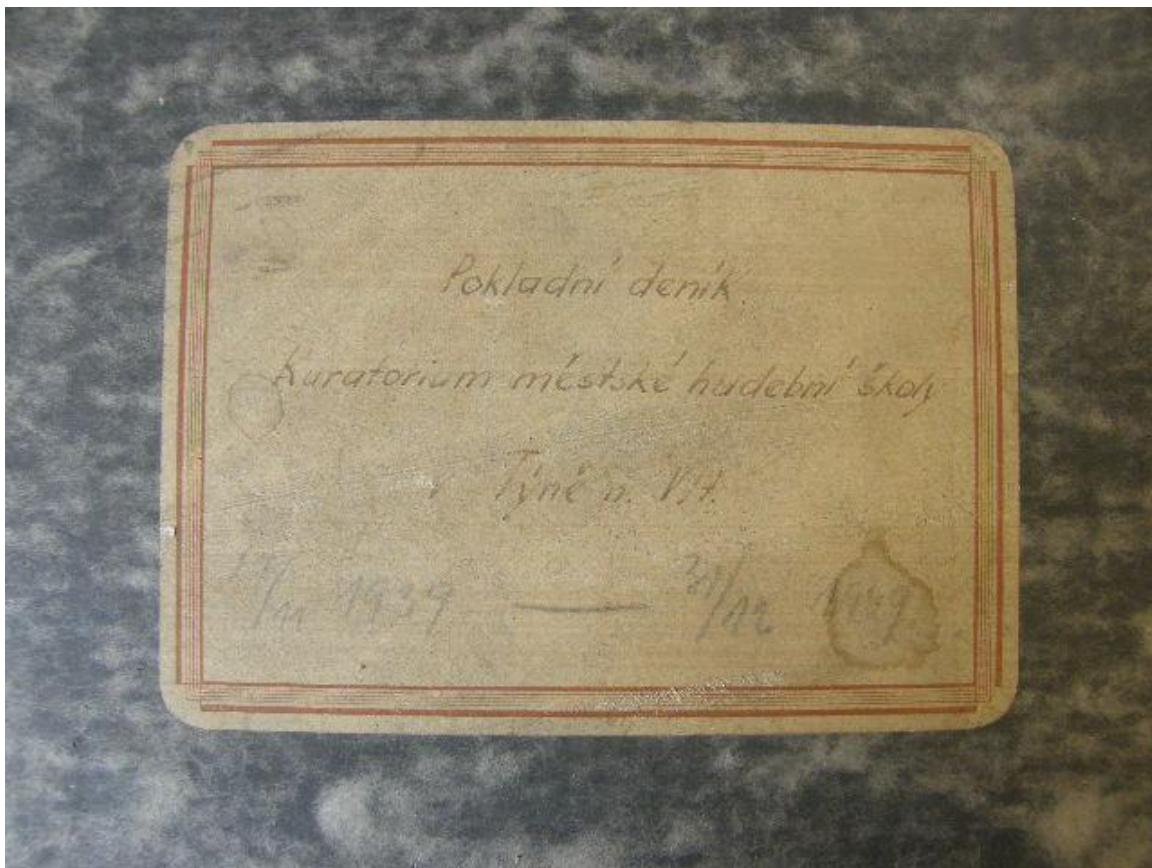 Pokladní deník.
Kuratorium městské hudební školy
v Týně n. Vlt.
1939 — 31/12